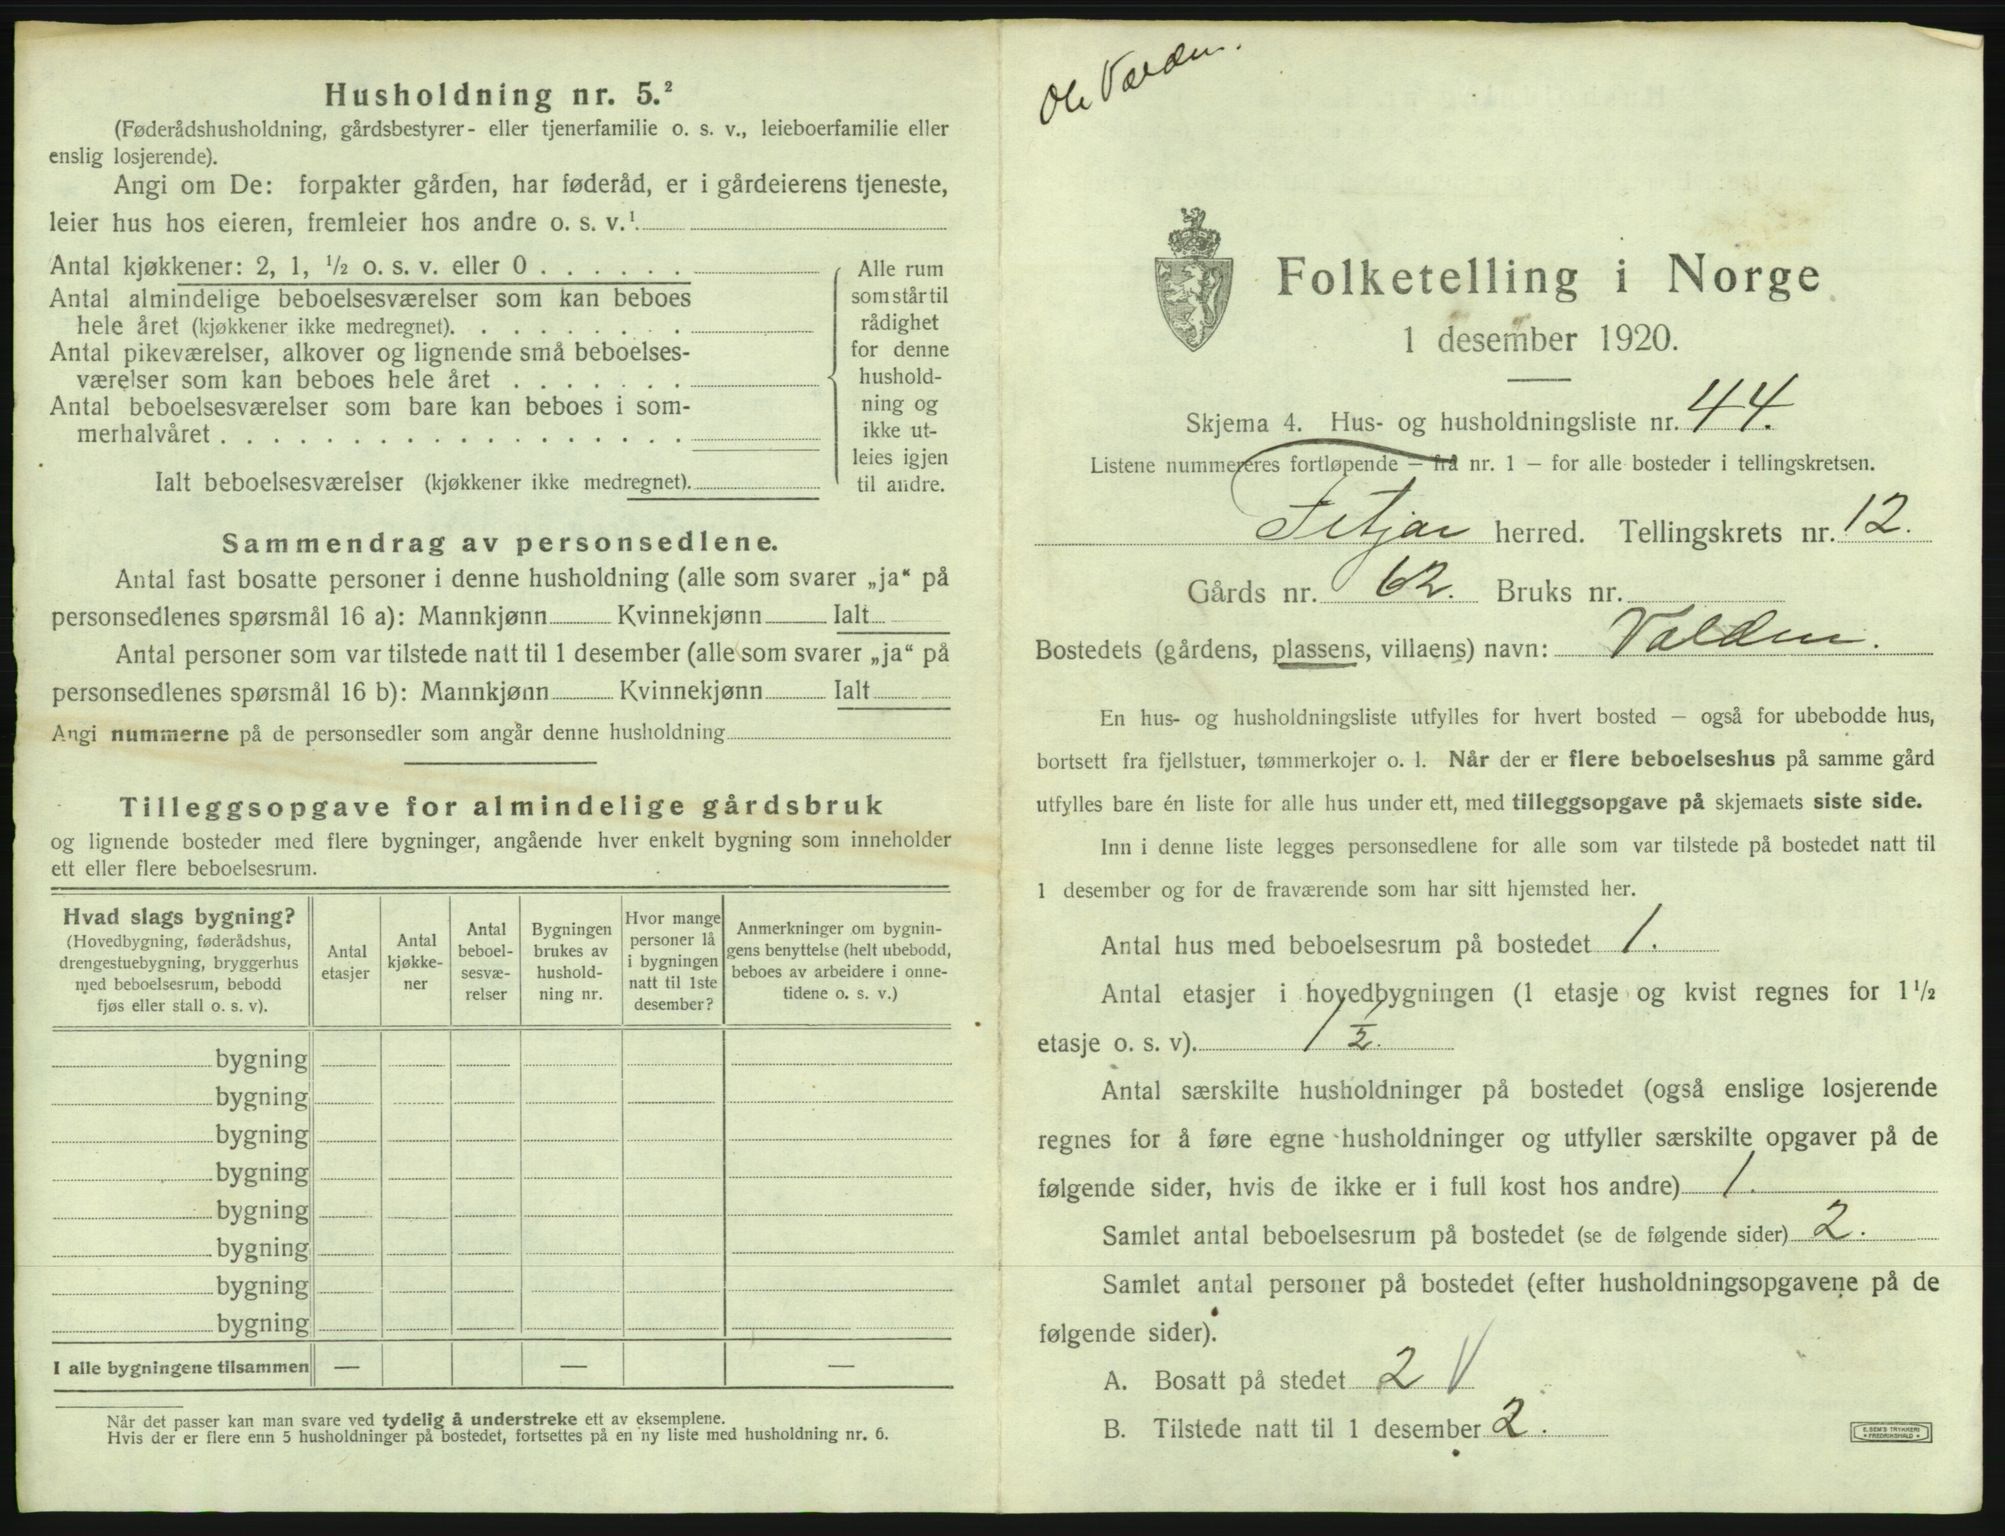 Husholdning nr. 5.²
(Føderådshusholdning, gårdsbestyrer- eller tjenerfamilie o. s. v., leieboerfamilie eller
enslig losjerende).
Angi om De: forpakter gården, har føderåd, er i gårdeierens tjeneste,
leier hus hos eieren, fremleier hos andre o. s. v.¹
Antal kjøkkener: 2, 1, ½ o. s. v. eller 0 . . . . . .
Antal almindelige beboelsesværelser som kan beboes
hele året (kjøkkener ikke medregnet). . . . . . . . .
Antal pikeværelser, alkover og lignende små beboelses-
værelser som kan beboes hele året . . . . . . .
Antal beboelsesværelser som bare kan beboes i som-
merhalvåret . . . . . . . . . . . . . . . . . .
Alle rum
som står til
rådighet
for denne
hushold-
ning og
ikke ut-
leies igjen
til andre.
Ialt beboelsesværelser (kjøkkener ikke medregnet).
Sammendrag av personsedlene.
Antal fast bosatte personer i denne husholdning (alle som svarer „ja“ på
personsedlenes spørsmål 16 a): Mannkjønn Kvinnekjønn Ialt
Antal personer som var tilstede natt til 1 desember (alle som svarer „ja“ på
personsedlenes spørsmål 16 b): Mannkjønn Kvinnekjønn Ialt
Angi nummerne på de personsedler som angår denne husholdning
Tilleggsopgave for almindelige gårdsbruk
og lignende bosteder med flere bygninger, angående hver enkelt bygning som inneholder
ett eller flere beboelsesrum.
Hvad slags bygning?
(Hovedbygning, føderådshus,
drengestuebygning, bryggerhus
med beboelsesrum, bebodd
fjøs eller stall o. s. v).
Antal
etasjer
Antal
kjøkke-
ner
Antal
beboel-
sesvæ-
relser
Bygningen
brukes av
hushold-
ning nr.
Hvor mange
personer lå
i bygningen
natt til 1ste
desember?
Anmerkninger om bygnin-
gens benyttelse (helt ubebodd,
beboes av arbeidere i onne-
tidene o. s. v.)
bygning
bygning
bygning
bygning
bygning
bygning
bygning
bygning
I alle bygningene tilsammen — — —
Når det passer kan man svare ved tydelig å understreke ett av eksemplene.
Hvis der er flere enn 5 husholdninger på bostedet, fortsettes på en ny liste med husholdning nr. 6.
Ole Valden.
Folketelling i Norge
1 desember 1920.
Skjema 4. Hus- og husholdningsliste nr. 44.
Listene nummereres fortløpende — fra nr. 1 — for alle bosteder i tellingskretsen.
Fitjar herred. Tellingskrets nr. 12.
Gårds nr. 62. Bruks nr.
Bostedets (gårdens, plassens, villaens) navn: Valden.
En hus- og husholdningsliste utfylles for hvert bosted — også for ubebodde hus,
bortsett fra fjellstuer, tømmerkojer o. l. Når der er flere beboelseshus på samme gård
utfylles bare én liste for alle hus under ett, med tilleggsopgave på skjemaets siste side.
Inn i denne liste legges personsedlene for alle som var tilstede på bostedet natt til
1 desember og for de fraværende som har sitt hjemsted her.
Antal hus med beboelsesrum på bostedet 1.
Antal etasjer i hovedbygningen (1 etasje og kvist regnes for 1½
etasje o. s. v). 1 ½.
Antal særskilte husholdninger på bostedet (også enslige losjerende
regnes for å føre egne husholdninger og utfyller særskilte opgaver på de
følgende sider, hvis de ikke er i full kost hos andre) 1.
Samlet antal beboelsesrum på bostedet (se de følgende sider) 2.
Samlet antal personer på bostedet (efter husholdningsopgavene på de
følgende sider).
A. Bosatt på stedet 2 V
B. Tilstede natt til 1 desember 2.
E. SEM'S TRYKKERI
• FREDRIKSHALD •